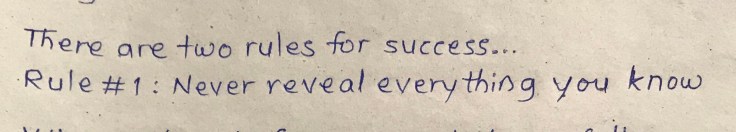 There are two rules for success...
Rule #1: Never reveal everything you know